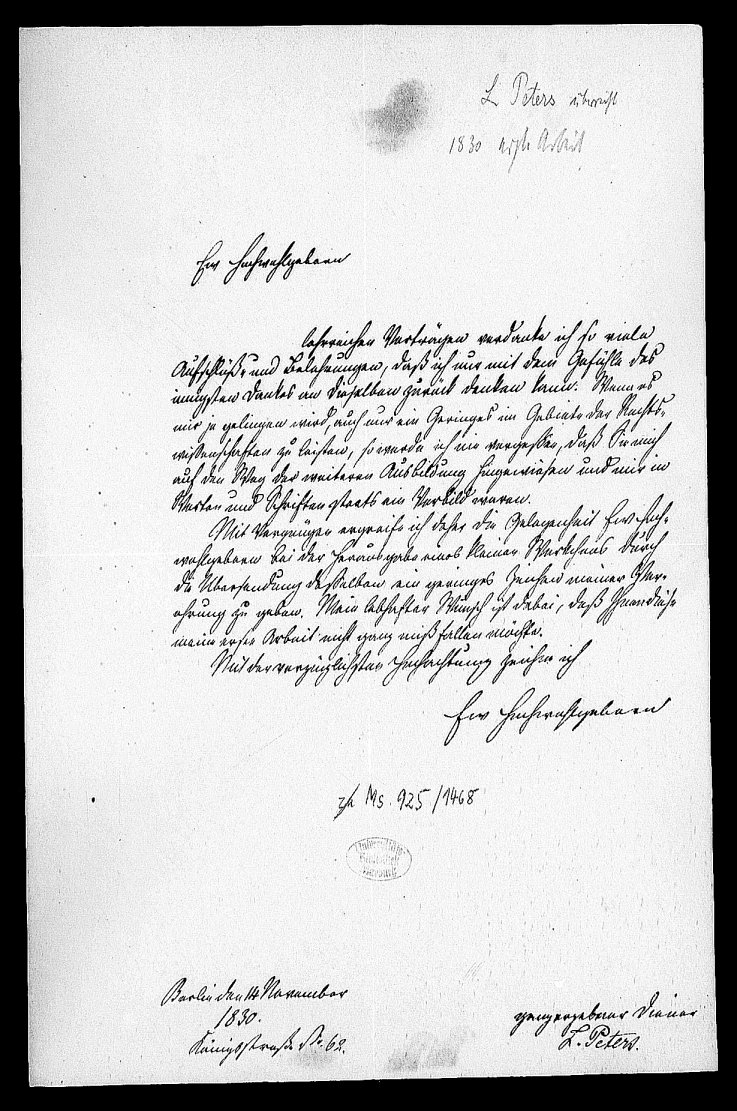 L Peters überreicht
1830 erste Arbeit
Ew Hochwohlgeboren
lehrreichen Vorträgen verdanke ich so viele
Aufschlüße und Belehrungen, daß ich nur mit dem Gefühle des
innigsten Dankes an Dieselben zurück denken kann. Wenn es
mir je gelingen wird, auch nur ein Geringes im Gebiete der Rechts-
wissenschaften zu leisten, so werde ich nie vergessen, daß Sie mich
auf den Weg der weiteren Ausbildung hingewiesen und mir in
Worten und Schriften stets ein Vorbild waren.
Mit Vergnügen ergreife ich daher die Gelegenheit Ew Hoch-
wohlgeboren bei der Herausgabe eines kleinen Werkchens durch
die Übersendung desselben ein geringes Zeichen meiner Ver-
ehrung zu geben. Mein lebhafter Wunsch ist dabei, daß Ihnen diese
meine erste Arbeit nicht ganz mißfallen möchte.
Mit der vorzüglichsten Hochachtung zeichne ich
Ew Hochwohlgeboren
zu Ms. 925/1468
Universitäts
Bibliothek
Marburg
Berlin den 14 November
1830.
Königsstraße No 62.
ganz ergebener Diener
L. Peters.